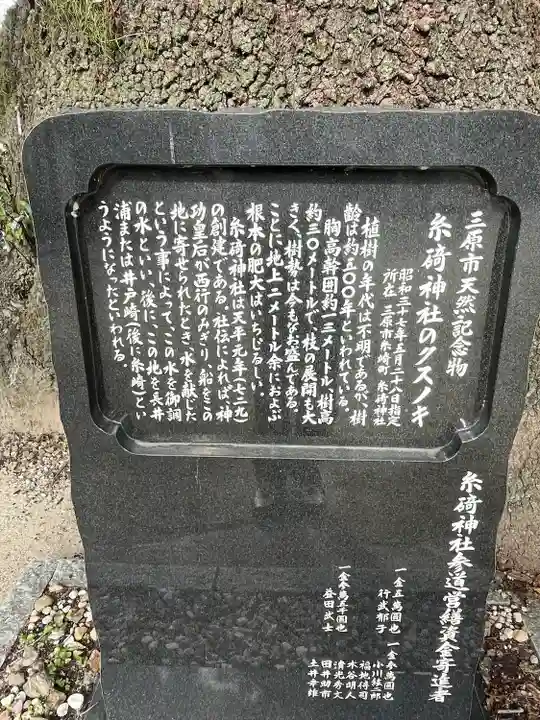 三原市天然記念物
糸碕神社のクスノキ
昭和三十七年五月二十八日指定
所在 三原市糸崎町 糸碕神社
植樹の年代は不明であるが、樹
齢は約五〇〇年といわれている。
胸高幹囲約一三メートル、樹高
約三〇メートルで、枝の展開も大
きく、樹勢は今もなお盛んである。
ことに地上一二メートル余におよぶ
根本の肥大はいちじるしい。
糸碕神社は天平元年(七二九)
の創建である。社伝によれば、神
功皇后が西行のみぎり、船をこの
地に寄せられたとき、水を献じた
という事によって、この水を御調
の水といい、後に、この地を長井
浦または井戸崎(後に糸崎)とい
うようになったといわれる。
糸碕神社参道営繕資金寄進者
一金五萬圓也
行武郁子
一金参萬五千圓也
益田武士
一金参萬圓也
小川雄二郎
福地得司
木谷明人
清光秀文
田井助市
土井幸雄